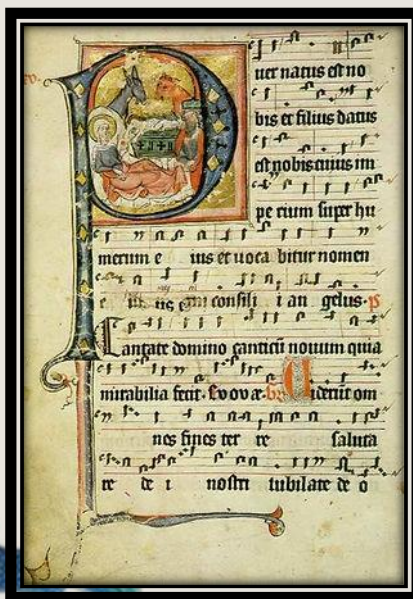 uer natus est no
bis et filius datus
est nobis cuius im
pe rium super hu
merum e ius et uoca bitur nomen
e ius consili i an gelus. ps
Cantate domino canticū nouum quia
mirabilia fecit. Evovæ. Uiderūt om
nes fines ter re saluta
re de i nostri iubilate de o